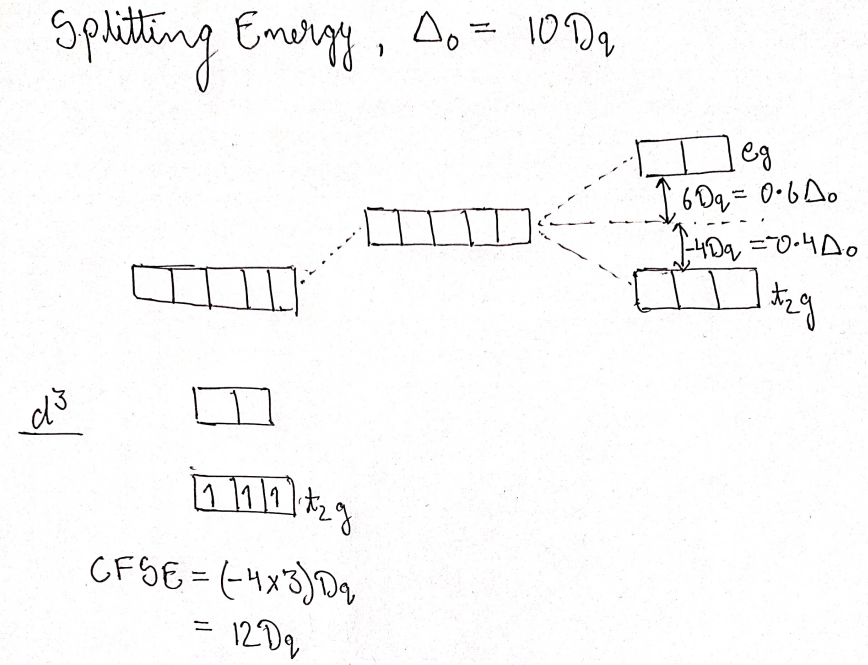 Splitting Energy, Δ₀ = 10Dq
eg
6Dq = 0.6Δ₀
-4Dq = -0.4Δ₀
t₂g
d³
1 1 1 t₂g
CFSE = (-4x3)Dq
= 12Dq